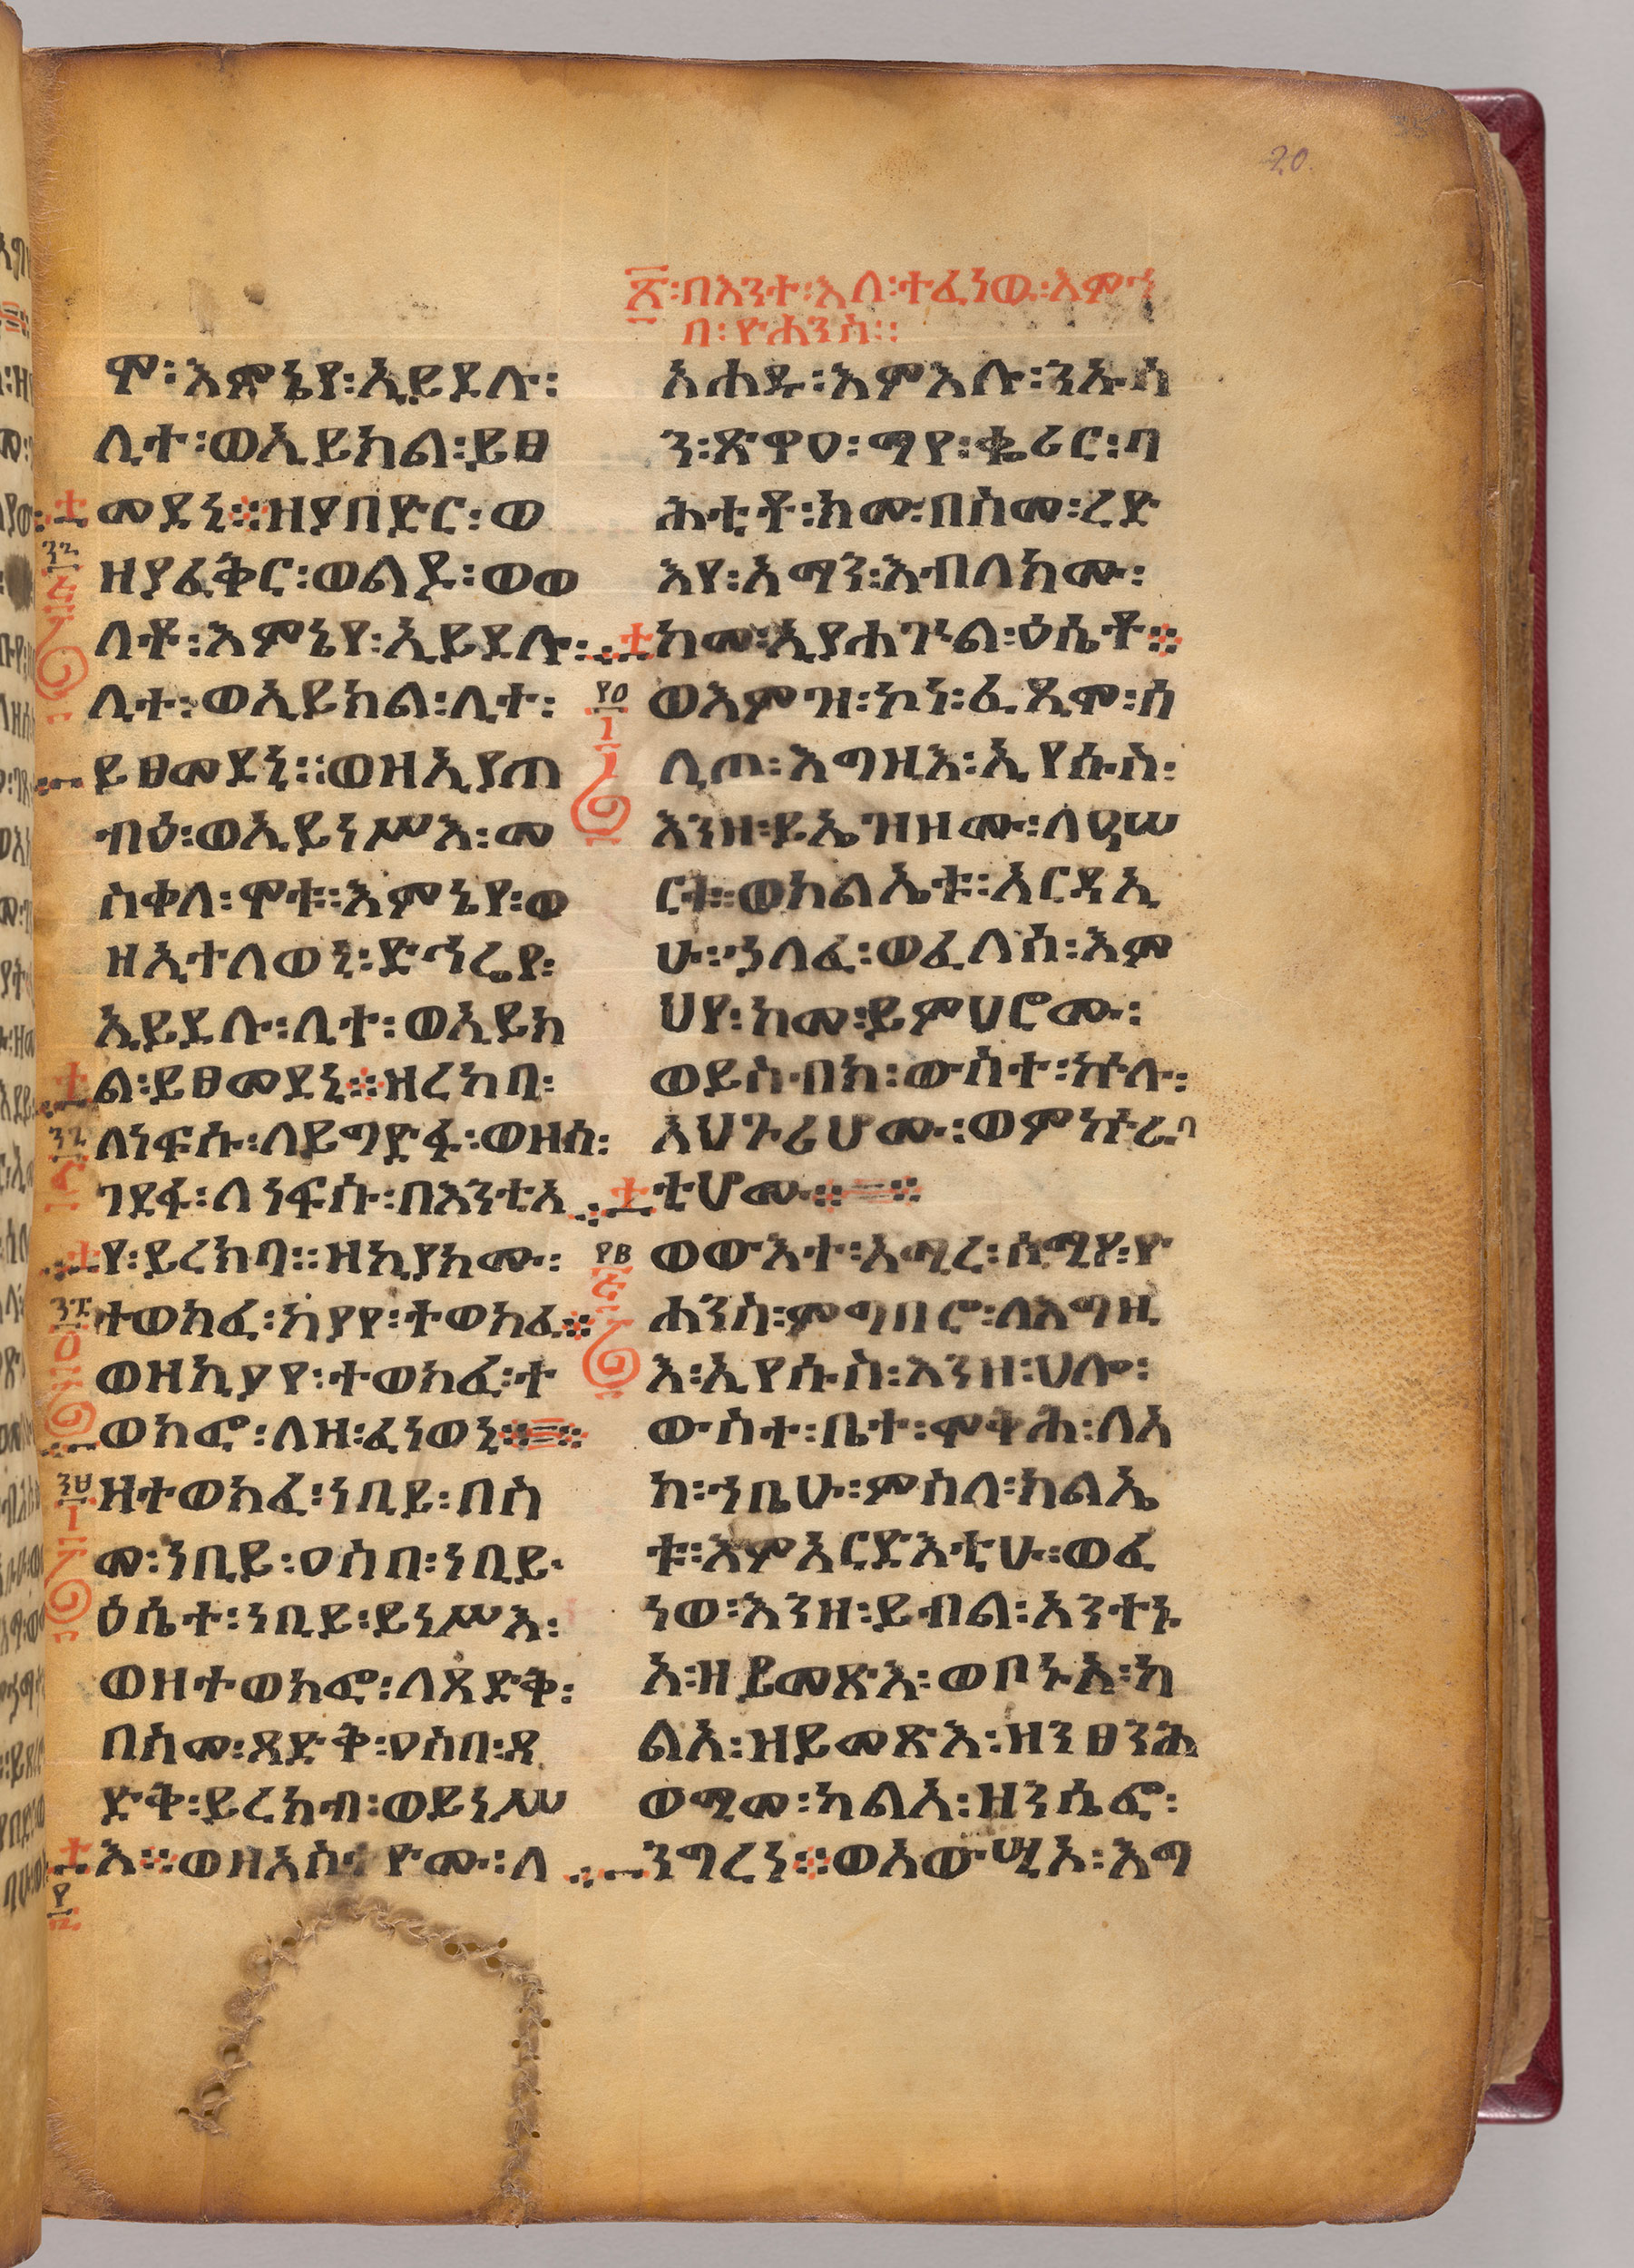 20
፳፡በእንተ፡እለ፡ተፈነወ፡እምኀ
በ፡ዮሐንስ፡፡
ሞ፡እምኔየ፡ኢይደሉ፡
ሊተ፡ወኢይክል፡ይፀ
መደኒ፨ዘያበድር፡ወ
ዘያፈቅር፡ወልዶ፡ወወ
ለቶ፡እምኔየ፡ኢይደሉ፡
ሊተ፡ወኢይክል፡ሊተ፡
ይፀመደኒ፡፡ወዘኢያጠ
ብዕ፡ወኢይነሥእ፡መ
ስቀለ፡ሞቱ፡እምኔየ፡ወ
ዘኢተለወኒ፡ድኅሬየ፡
ኢይደሉ፡ሊተ፡ወኢይክ
ል፡ይፀመደኒ፨ዘረከባ፡
ለነፍሱ፡ለይግድፋ፡ወዘሰ፡
ገደፋ፡ለነፍሱ፡በእንቲአ
የ፡ይረክባ፡፡ዘኪያክሙ፡
ተወክፈ፡ኪያየ፡ተወክፈ፨
ወዘኪያየ፡ተወክፈ፡ተ
ወክፎ፡ለዘ፡ፈነወኒ፨=፨
ዘተወክፈ፡ነቢይ፡በስ
መ፡ነቢይ፡ዐስበ፡ነቢይ፡
ዕሴተ፡ነቢይ፡ይነሥእ፡
ወዘተወክፎ፡ለጻድቅ፡
በስመ፡ጻድቅ፡ዐስበ፡ጻ
ድቅ፡ይረክብ፡ወይነሥ
እ፨ወዘአስተዮሙ፡ለ
አሐዱ፡እምእሉ፡ንኡሳ
ን፡ጽዋዐ፡ማየ፡ቈሪር፡ባ
ሕቲቶ፡ከሙ፡በስመ፡ረድ
እየ፡አማን፡እብለክሙ፡
ከመ፡ኢያሐጉል፡ዕሴቶ፨
ወእምዝ፡ኮነ፡ፈጺሞ፡ሰ
ሊጦ፡እግዚእ፡ኢየሱስ፡
እንዘ፡ይኤዝዘሙ፡ለ፲ሠ
ርቱ፡ወክልኤቱ፡አርዳኢ
ሁ፡ኃለፈ፡ወፈለሰ፡እም
ህየ፡ከመ፡ይምህሮሙ፡
ወይስብክ፡ውስተ፡ኵሉ፡
አህጉሪሆሙ፡ወምኵራባ
ቲሆሙ፨=፨
ወውእተ፡አሚረ፡ሰሚዖ፡ዮ
ሐንስ፡ምግባሮ፡ለእግዚ
እ፡ኢየሱስ፡እንዘ፡ሀሎ፡
ውስተ፡ቤተ፡ሞቅሕ፡ለአ
ከ፡ኀቤሁ፡ምስለ፡ክልኤ
ቱ፡እምአርድእቲሁ፡ወፈ
ነወ፡እንዘ፡ይብል፡አንተኑ
አ፡ዘይመጽእ፡ወቦኑአ፡ካ
ልእ፡ዝይመጽእ፡ዘንፀንሕ
ወሚመ፡ካልእ፡ዘንሴፎ፡
ንግረነ፨ወአውሢኦ፡እግ